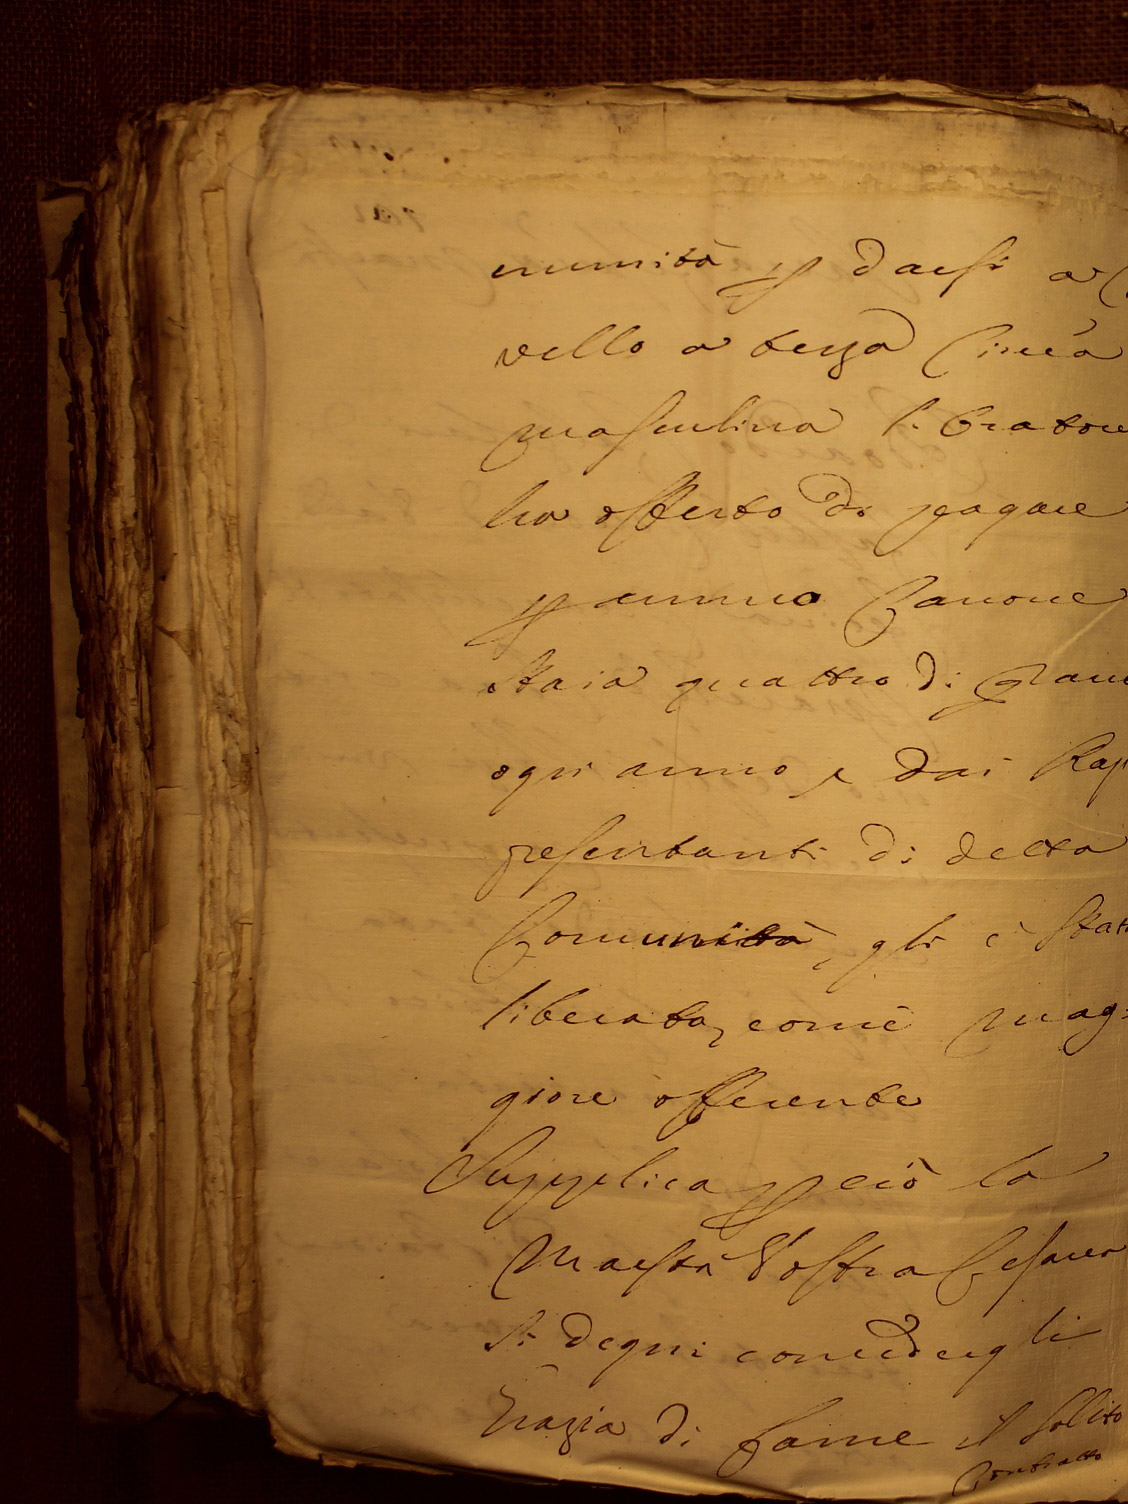 munità p darsi a
vello a terza Linea
masculina l'Oratore
ha offerto di pagare
p annuo Canone
staia quattro di Gran
ogni anno, e dai Rap
presentanti di detta
Comunità, gli è stat
liberata, come mag:
giore offerente
Supplica p ciò la
Maestà Vostra Cesarea
si degni concedergli
Grazia di farne il solito
Contratto